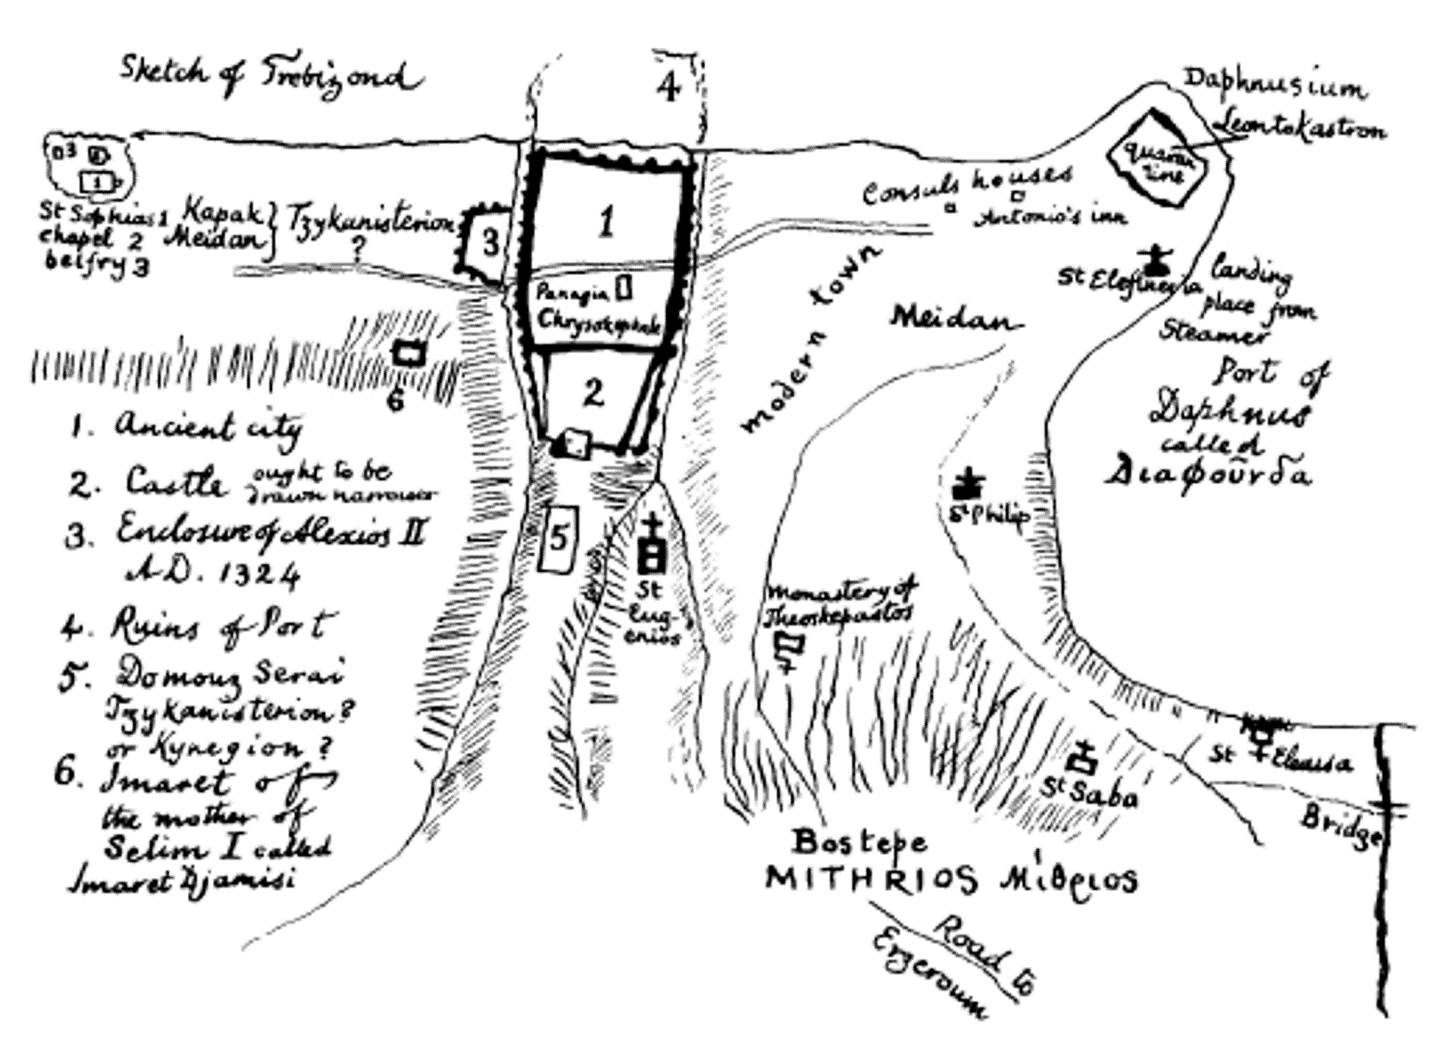 Sketch of Trebizond
4
Daphnusium
Leontokastron
quaran
tine
3 2
1
St Sophias 1
chapel 2
belfry 3
Kapak
Meidan
Tzykanisterion
?
3
1
Panagia
Chrysokephale
2
6
Consuls houses
Antonio's inn
modern town
Meidan
St Eleftheria
landing
place from
Steamer
Port of
Daphnus
called
Διαφοῦνδα
1. Ancient city
2. Castle ought to be
drawn narrower
3. Enclosure of Alexios II
A.D. 1324
4. Ruins of Port
5. Domouz Serai
Tzykanisterion?
or Kynegion?
6. Imaret of
the mother of
Selim I called
Imaret Djamisi
5
St
Eug-
enios
St Philip
monastery of
Theoskepastos
St Saba
St Eleusa
Bridge
Bostepe
MITHRIOS Μίθριος
Road to
Erzeroum